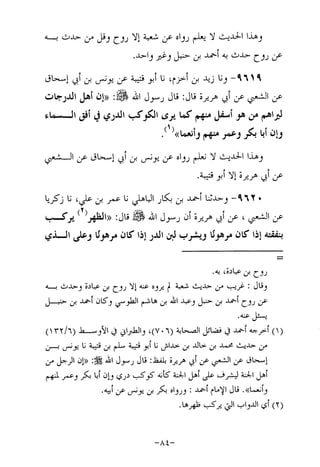 وهذا الحديث لا يعلم رواه عن شعبة إلا روح وقل من حدث بـــه
عن روح حدث به أحمد بن حنبل وغير واحد.
٩٦١٩- ونا زيد بن أخزم، نا أبو قتيبة عن يونس بن أبي إسحاق
عن الشعبي عن أبي هريرة قال: قال رسول الله ﷺ: ((إن أهل الدرجات
ليراهم من هو أسفل منهم كما يرى الكوكب الدري في أفق الســماء
وإن أبا بكر وعمر منهم وأنعما))(١).
وهذا الحديث لا نعلم رواه عن يونس بن أبي إسحاق عن الــشعبي
عن أبي هريرة إلا أبو قتيبة.
٩٦٢٠- وحدثنا أحمد بن بكار الباهلي نا عمر بن علي، نا زكريا
عن الشعبي ، عن أبي هريرة أن رسول الله ﷺ قال: ((الظهر(٢) يركــب
بنفقته إذا كان مرهونا ويشرب لبن الدر إذا كان مرهونا وعلى الــذي
روح بن عبادة، به.
وقال: غريب من حديث شعبة لم يروه عنه إلا روح بن عبادة وحدث بــه
عن روح أحمد بن حنبل وعبد الله بن هاشم الطوسي وكان أحمد بن حنبــل
يسئل عنه.
(١) أخرجه أحمد في فضائل الصحابة (٧٠٦)، والطبراني في الأوســط (١٣٢/٦)
من حديث محمد بن خالد بن خداش نا أبو قتيبة سلم بن قتيبة نا يونس بــن
إسحاق عن الشعبي عن أبي هريرة بلفظ: قال رسول الله ﷺ: ((إن الرجل من
أهل الجنة ليشرف على أهل الجنة كأنه كوكب دري وإن أبا بكر وعمر لمنهم
وأنعما)). قال الإمام أحمد : ورواه بكر بن يونس عن أبيه.
(٢) أي الدواب التي يركب ظهرها.
-٨٤-